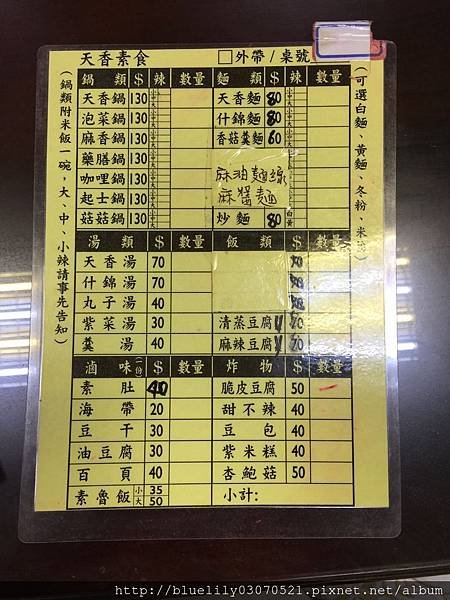 天香素食 □外帶/桌號
鍋類 $ 辣 數量 麵類 $ 辣 數量
天香鍋 130 小中大 天香麵 80 小中大
泡菜鍋 130 小中大 什錦麵 80 小中大
麻香鍋 130 小中大 香菇羹麵 60 小中大
藥膳鍋 130
咖哩鍋 130 麻油麵線
起士鍋 130 麻醬麵
菇菇鍋 130 炒麵 80 白黃
湯類 $ 數量 飯類 $ 數量
天香湯 70
什錦湯 70
丸子湯 40
紫菜湯 30 清蒸豆腐 70
羹湯 40 麻辣豆腐 70
滷味(一份) $ 數量 炸物 $ 數量
素肚 40 脆皮豆腐 50
海帶 20 甜不辣 40
豆干 30 豆包 40
油豆腐 30 紫米糕 40
百頁 40 杏鮑菇 50
素魯飯 小 35 大 50 小計:
(鍋類附米飯一碗,大、中、小辣請事先告知)
(可選白麵、黃麵、冬粉、米
http://bluelily03070521.pixnet.net/album